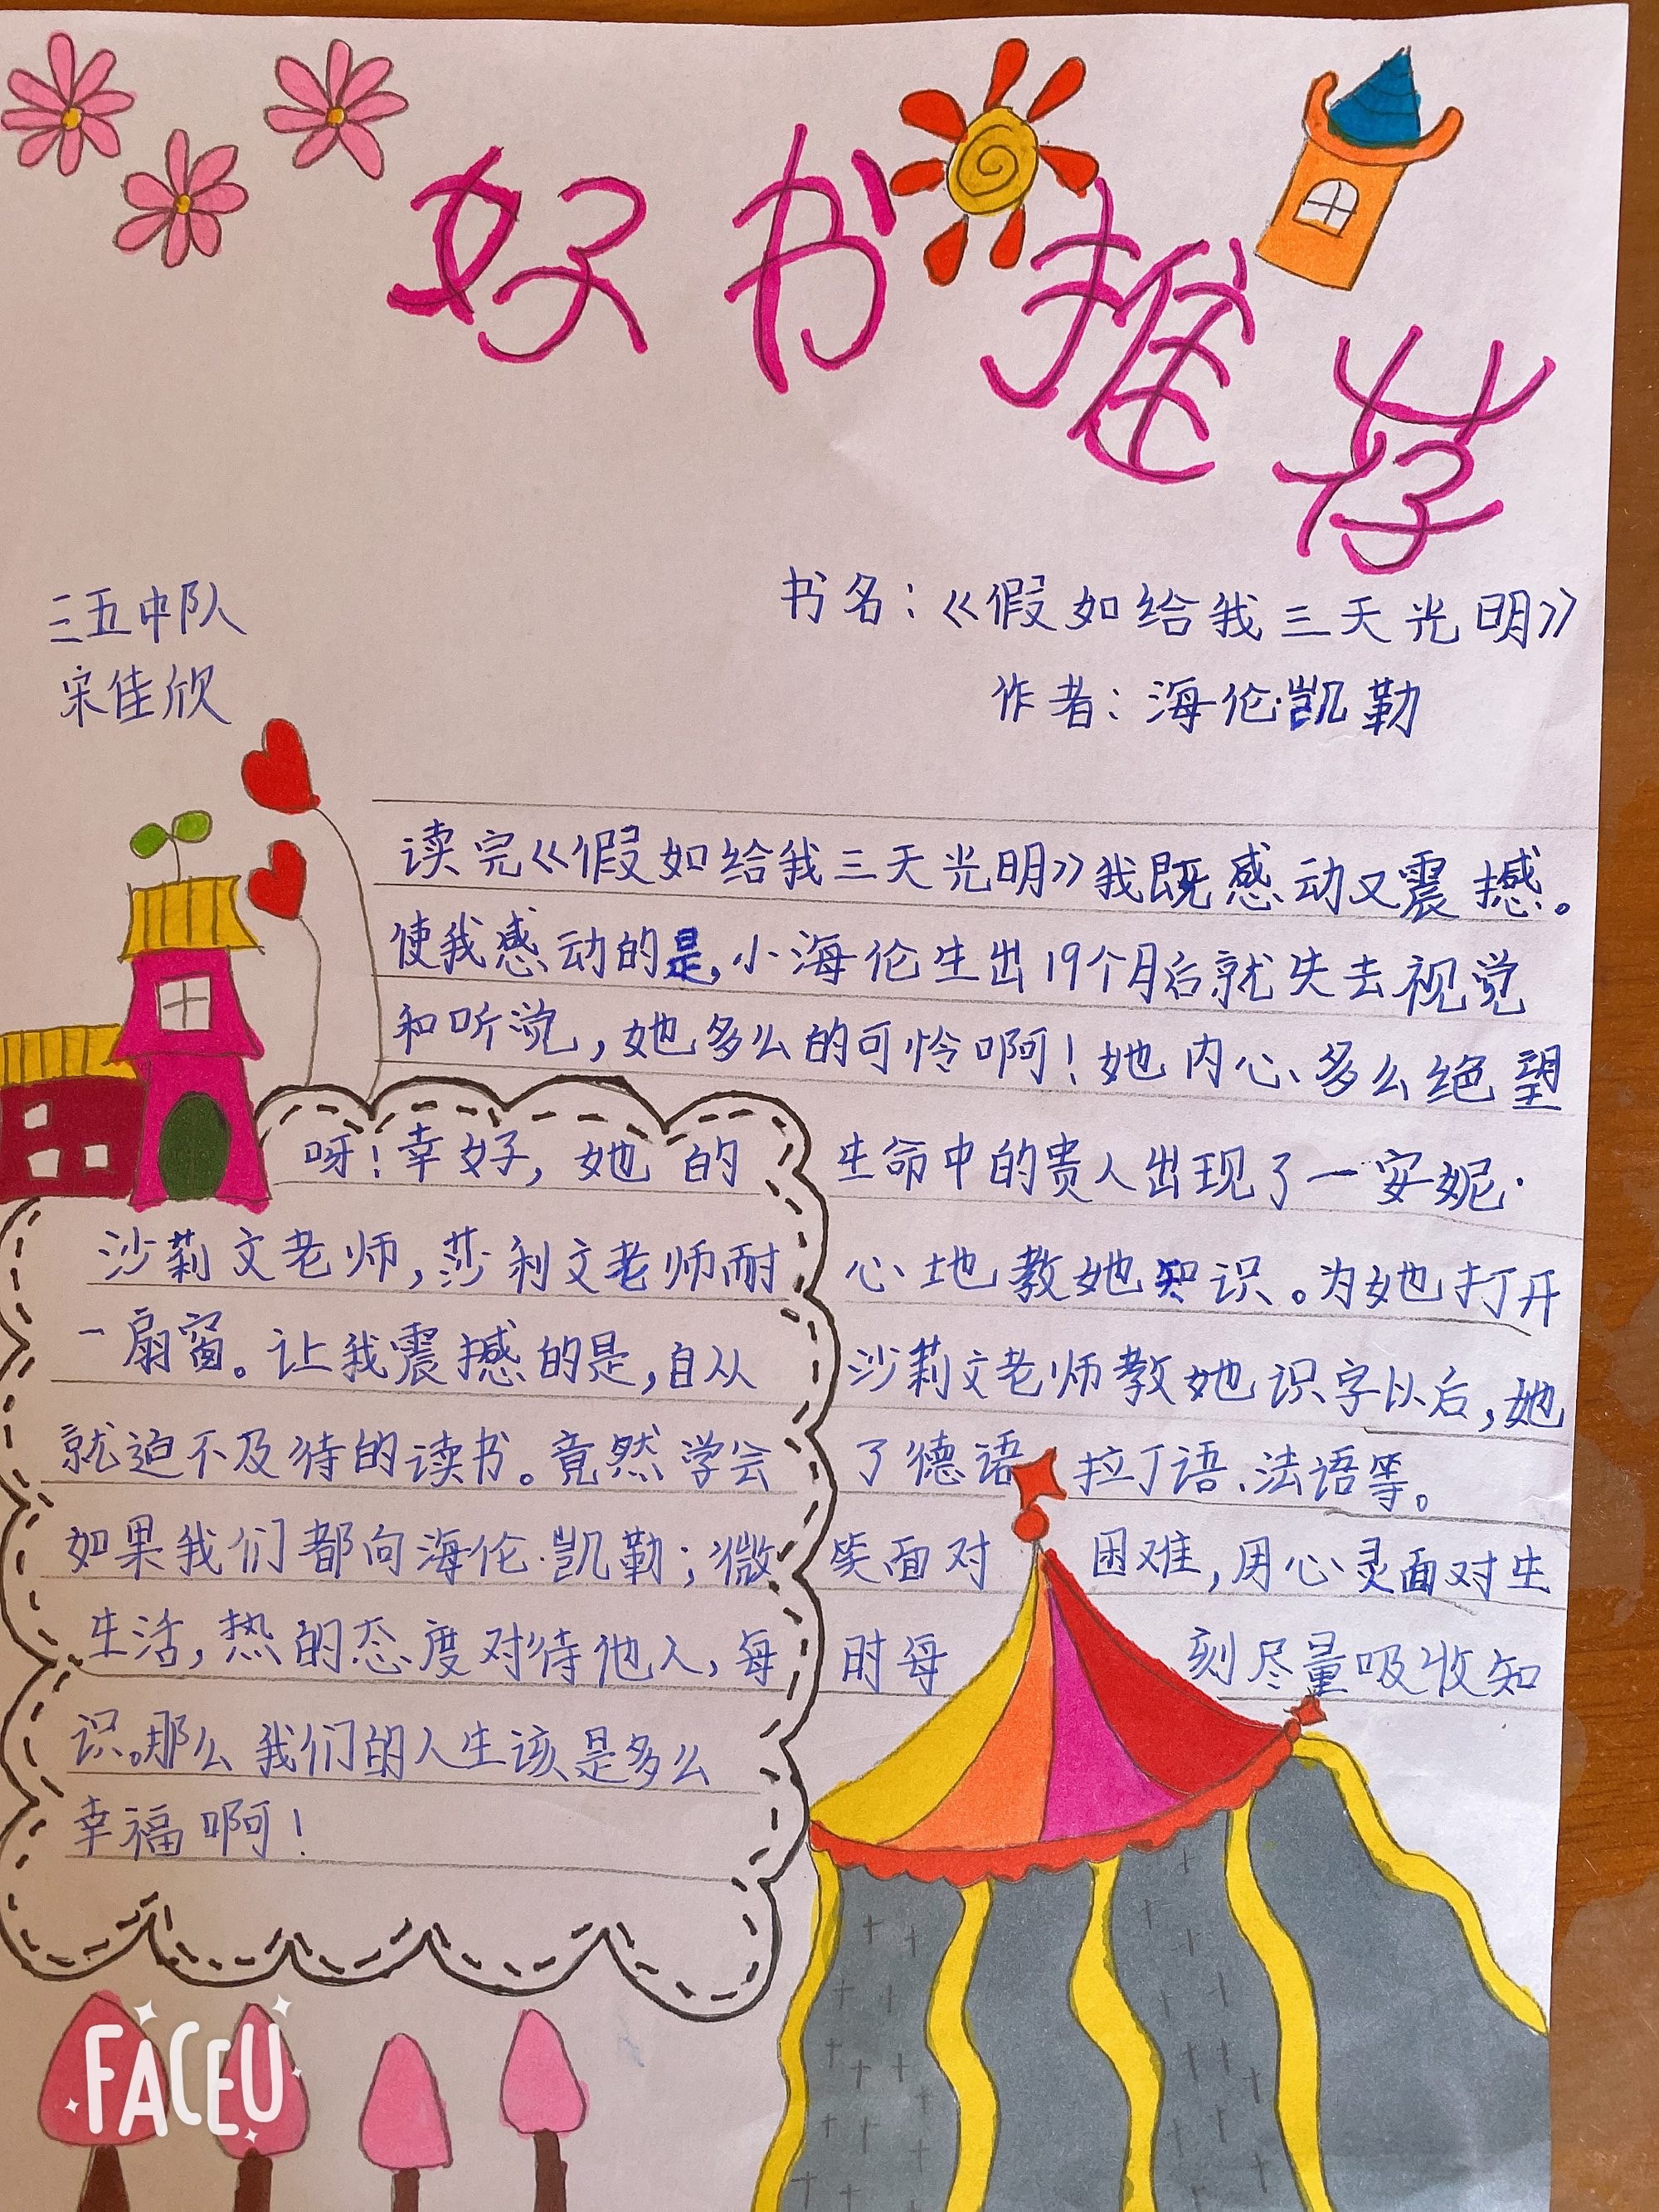 好书推荐
三五中队
宋佳欣
书名:《假如给我三天光明》
作者:海伦·凯勒
读完《假如给我三天光明》我既感动又震撼。
使我感动的是,小海伦生出19个月后就失去视觉
和听觉,她多么的可怜啊!她内心多么绝望
呀!幸好,她的生命中的贵人出现了一安妮·
沙莉文老师,莎利文老师耐心地教她知识。为她打开
一扇窗。让我震撼的是,自从沙莉文老师教她识字以后,她
就迫不及待的读书。竟然学会了德语、拉丁语、法语等。
如果我们都向海伦·凯勒;微笑面对困难,用心灵面对生
生活,热的态度对待他人,每时每刻尽量吸收知
识。那么我们的人生该是多么
幸福啊!
FACEU